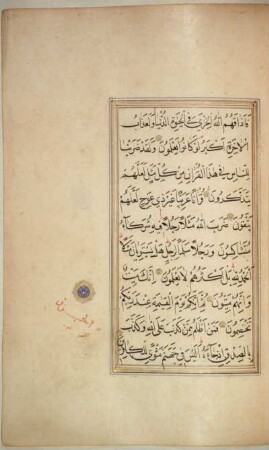 فَأَذَاقَهُمُ اللَّهُ الْخِزْيَ فِي الْحَيَوةِ الدُّنْيَا وَلَعَذَابُ
الْآخِرَةِ أَكْبَرُ لَوْ كَانُوا يَعْلَمُونَ وَلَقَدْ ضَرَبْنَا
لِلنَّاسِ فِي هَذَا الْقُرْآنِ مِنْ كُلِّ مَثَلٍ لَعَلَّهُمْ
يَتَذَكَّرُونَ قُرْآنًا عَرَبِيًّا غَيْرَ ذِي عِوَجٍ لَعَلَّهُمْ
يَتَّقُونَ ضَرَبَ اللَّهُ مَثَلًا رَجُلًا فِيهِ شُرَكَاءُ
مُتَشَاكِسُونَ وَرَجُلًا سَلَمًا لِرَجُلٍ هَلْ يَسْتَوِيَانِ مَثَلًا
الْحَمْدُ لِلَّهِ بَلْ أَكْثَرُهُمْ لَا يَعْلَمُونَ إِنَّكَ مَيِّتٌ
وَإِنَّهُمْ مَيِّتُونَ ثُمَّ إِنَّكُمْ يَوْمَ الْقِيَمَةِ عِنْدَ رَبِّكُمْ
تَخْتَصِمُونَ فَمَنْ أَظْلَمُ مِمَّنْ كَذَبَ عَلَى اللَّهِ وَكَذَّبَ
بِالصِّدْقِ إِذْ جَاءَهُ أَلَيْسَ فِي جَهَنَّمَ مَثْوًى لِلْكَافِرِينَ